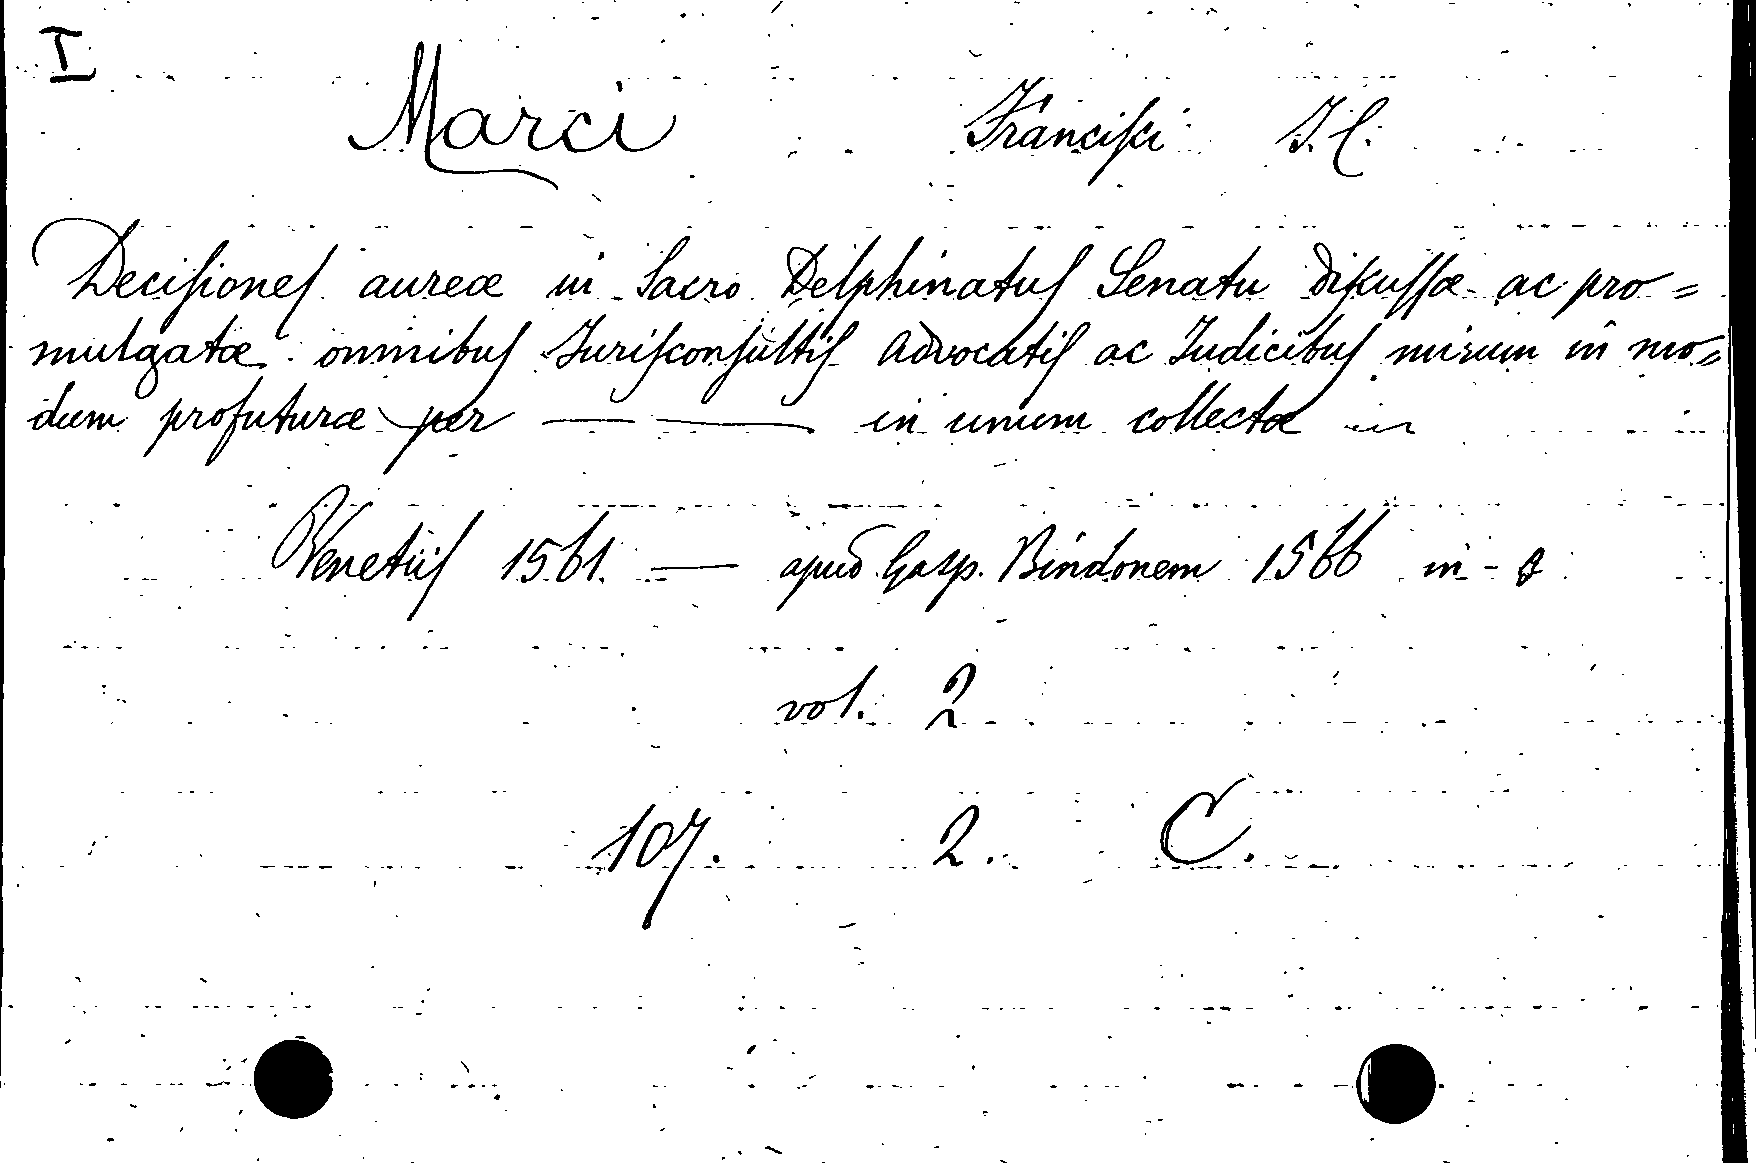 I
Marci Francisci J.C.
Decisiones aureæ in Sacro Delphinatus Senatu diskussæ ac pro=
mulgatæ omnibus Jurisconsultis advocatis ac Judicibus mirum in mo=
dum profuturæ per — — in unum collectæ
Venetiis 1561. — apud Gasp. Bindonem 1566 in-8
vol. 2
107. 2. C.